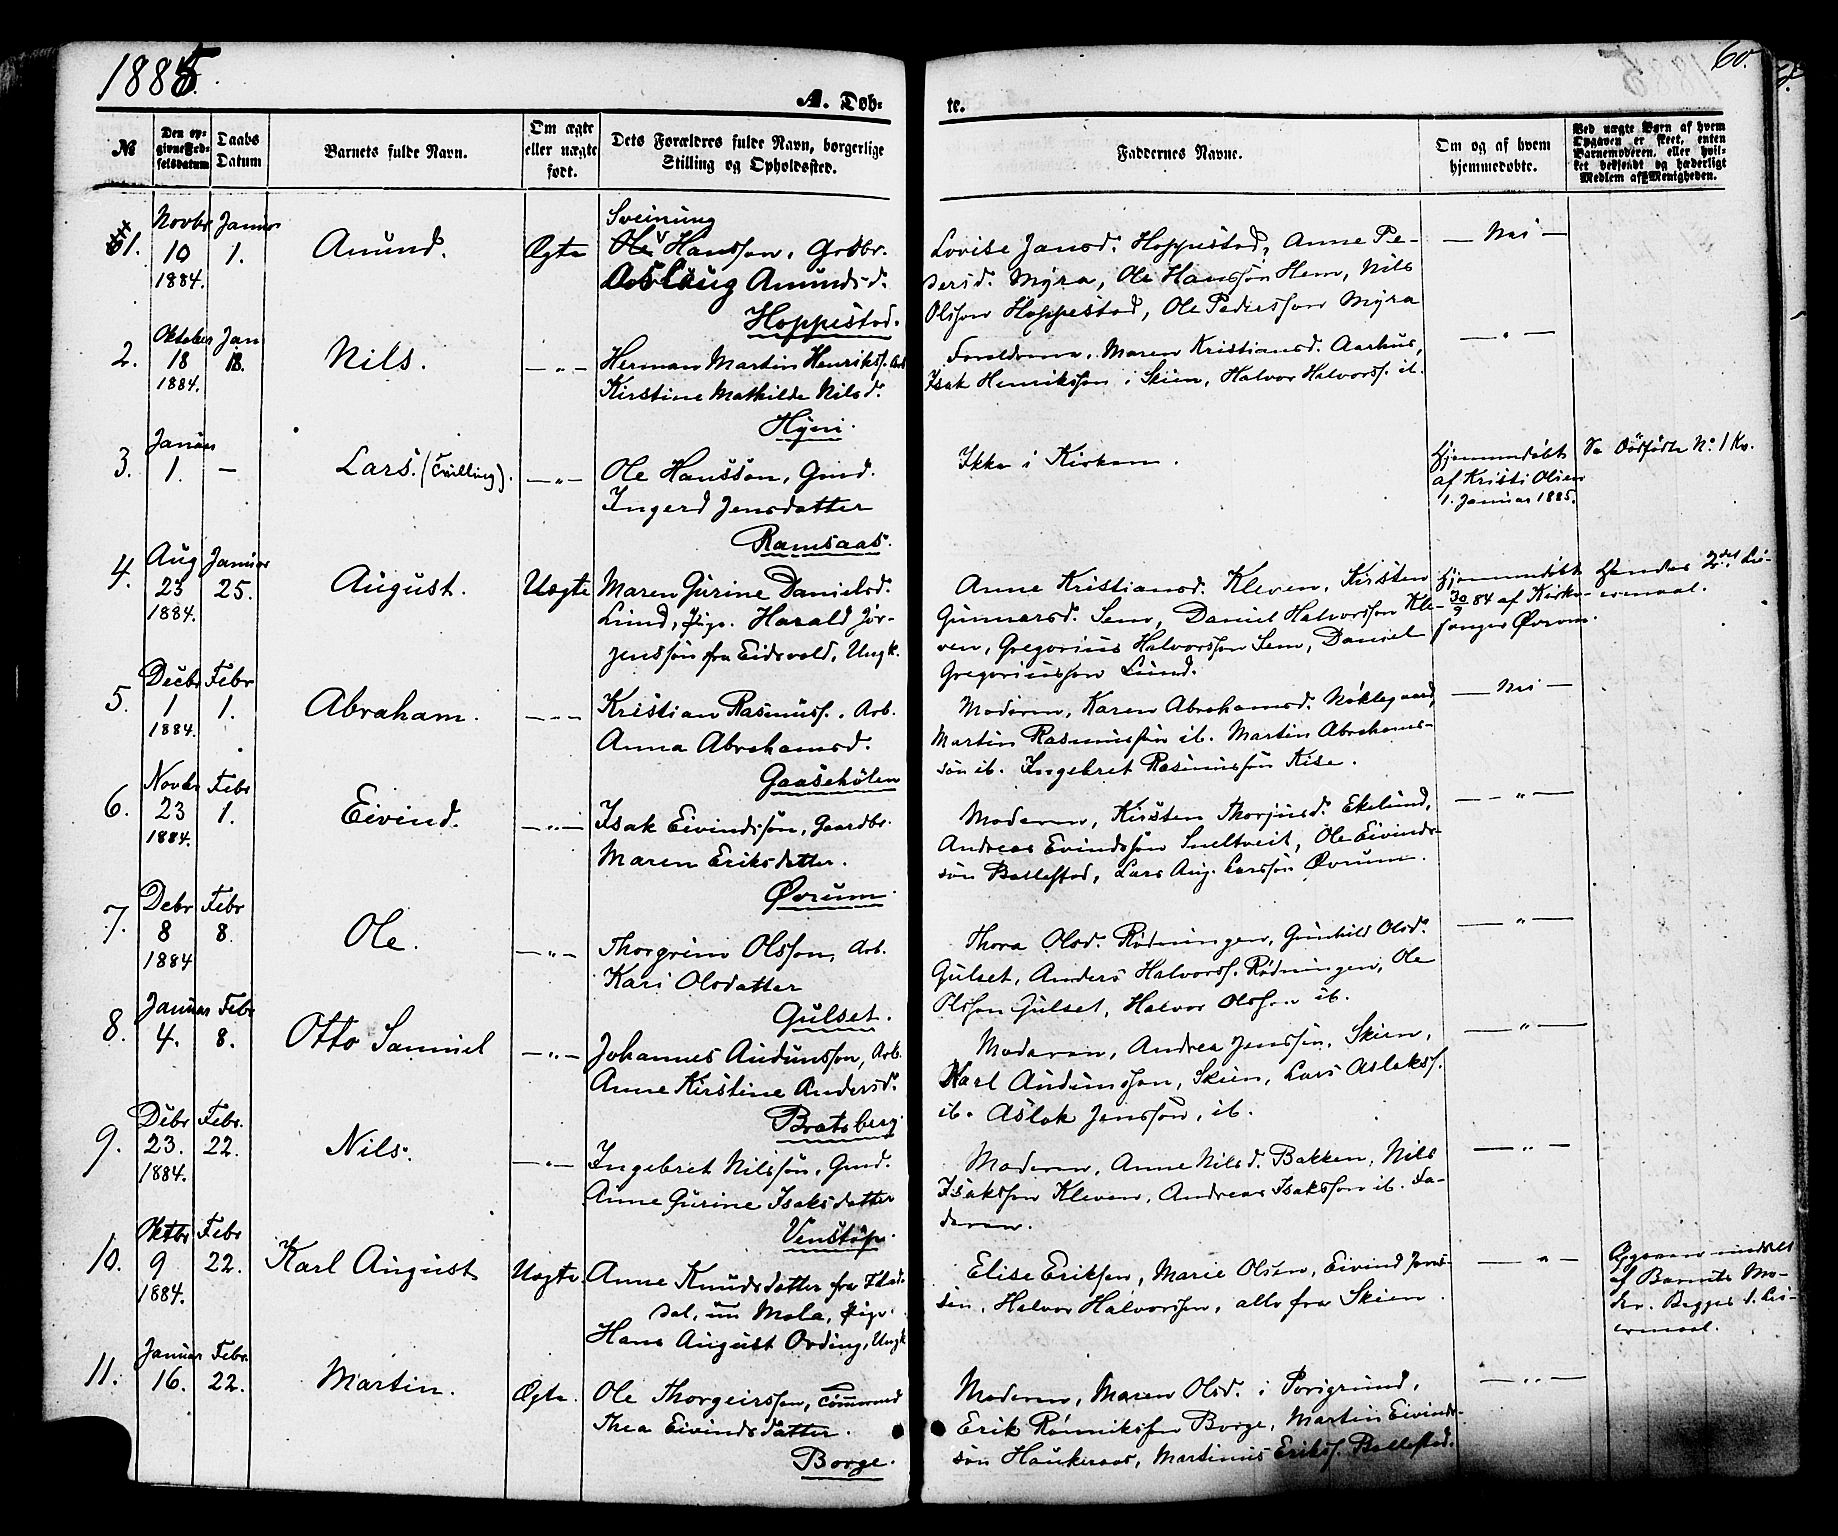 1885.
60.
A. Døb-
te.
№
Den op-
givne Fød-
selsdatum
Daabs
Datum
Barnets fulde Navn.
Om ægte
eller uægte
født.
Dets Forældres fulde Navn, borgerlige
Stilling og Opholdssted.
Faddernes Navne.
Om og af hvem
hjemmedøbte.
Ved uægte Børn af hvem
Opgaven er skeet, enten
Barnemoderen, eller hvil-
ket bekjendt og hæderligt
Medlem af Menigheden.
1.
Novbr
10
1884.
Januar
1.
Anund.
Ægte
Sveinung
Ole Hansson, Grdbr.
Aslaug Anundsd.
Hoppestad.
Lovise Jansd. Hoppestad, Anne Pe-
dersd. Myra, Ole Hansson Hem, Nils
Olsson Hoppestad, Ole Pedersson Myra
— Nei —
2.
Oktober
18
1884.
Jan
18.
Nils.
— " —
Herman Martin Henrikss. Arb
Kirstine Mathilde Nilsd.
Hyni.
Forældrene, Maren Kristiansd. Aarhus,
Isak Henriksson i Skien, Halvor Halvorss. ib.
— " —
3.
Januar
1.
—
Lars. (Tvilling).
— " —
Ole Hansson, Gmd.
Ingerd Jensdatter
Ramsaas.
Ikke i Kirken.
Hjemmedøbt
af Kristi Olsen
1. Januar 1885.
Se Dødfødte No. 1 Kv.
4.
Aug
23
1884.
Januar
25.
August.
Uægte
Maren Gurine Danielsd.
Lund, Pige. Harald Jør-
gensson fra Eidsvold, Ungk.
Anne Kristiansd. Kleven, Kirsten
Gunnarsd. Sem, Daniel Halvorsson Kle-
ven, Gregorius Halvorsson Sem, Daniel
Gregoriusson Lund.
Hjemmedøbt
30/9 84 af Kirke-
sanger Øvrum.
Hendes 2det Lei-
ermaal.
5.
Decbr
1
1884.
Febr
1.
Abraham.
— " —
Kristian Rasmuss., Arb.
Anna Abrahamsd.
Gaasehølen
Moderen, Karen Abrahamsd. Nøklegaard,
Martin Rasmusson ib. Martin Abrahams-
søn ib. Ingebret Rasmusson Kise.
— Nei —
6.
Novbr
23
1884.
Febr
1.
Eivind.
— " —
Isak Eivindsson, Gaardbr.
Maren Eriksdatter.
Øvrum.
Moderen, Kirsten Thorjusd. Ekelund,
Andreas Evindsson Sneltveit, Ole Eivinds-
søn Ballestad, Lars Aug. Larsson Øvrum.
— " —
7.
Debr
8
1884
Febr
8.
Ole.
— " —
Thorgrim Olsson, Arb.
Kari Olsdatter
Gulset.
Thora Olsd. Rødningen, Gunhild Olsd.
Gulset, Anders Halvorss. Rødningen, Ole
Olsson Gulset, Halvor Olsson ib.
— " —
8.
Januar
4.
Febr
8.
Otto Samuel
— " —
Johannes Audunsson, Arb.
Anne Kirstine Andersd.
Bratsberg
Moderen, Andrea Jenssøn, Skien,
Karl Audunsson, Skien, Lars Aslakss.
ib. Aslak Jensson, ib.
— " —
9.
Debr
23.
1884.
Febr.
22.
Nils.
— " —
Ingebret Nilsson, Gmd.
Anne Gurine Isaksdatter
Venstøp.
Moderen, Anne Nilsd. Bakken, Nils
Isaksson Kleven, Andreas Isaksson ib. Fa-
deren.
— " —
10.
Oktbr
9
1884.
Febr
22.
Karl August
Uægte
Anne Knudsdatter fra Flaa-
dal, nu Mæla, Pige.
Hans August Ording, Ungk
Elise Eriksen, Marie Olsen, Eivind Jons-
søn, Halvor Halvorsson, alle fra Skien.
— " —
Opgaven meddelt
af Barnets Mo-
der. Begges 1. Lei-
ermaal.
11.
Januar
16.
Febr.
22.
Martin.
Ægte.
Ole Thorgeirsson, Tømmermd
Thea Eivindsdatter.
Borge.
Moderen, Maren Olsd. i Porsgrund,
Erik Rønniksøn Borge, Martin Eivinds-
søn Haukeraas, Martinius Erikss. Ballestad.
— " —